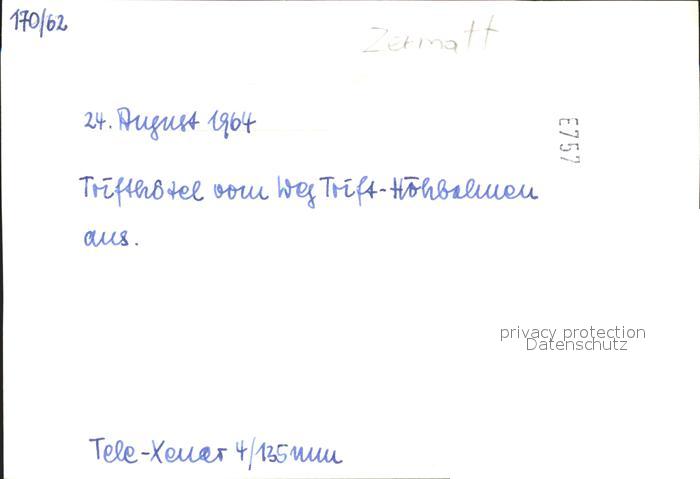 170/62
Zermatt
24. August 1964
E757
Trifthôtel vom Weg Trift-Höhbalmen
aus.
privacy protection
Datenschutz
Tele-Xenar 4/135mm